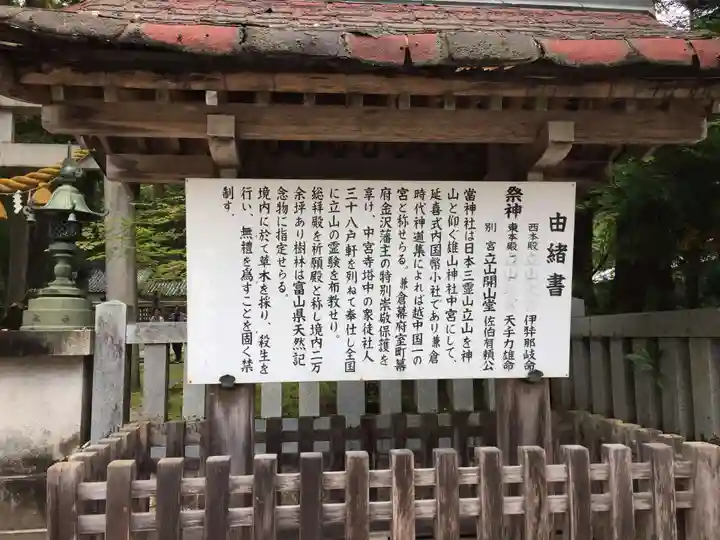 由緒書
祭神
西本殿 立山 伊弉那岐命
東本殿 山 天手力雄命
別宮 立山開山堂 佐伯有頼公
當神社は日本三霊山立山を神
山と仰ぐ雄山神社中宮にして、
延喜式内国幣小社であり兼倉
時代神道集によれば越中国一の
宮と称せらる。兼倉幕府室町幕
府金沢藩主の特別崇敬保護を
享け、中宮寺塔中の衆徒社人
三十八戸軒を列ねて奉仕し全国
に立山の霊験を布教せり。
総拝殿を祈願殿と称し境内二万
余坪あり樹林は富山県天然記
念物に指定せらる。
境内に於て草木を採り、殺生を
行い、無禮を爲すことを固く禁
制す。